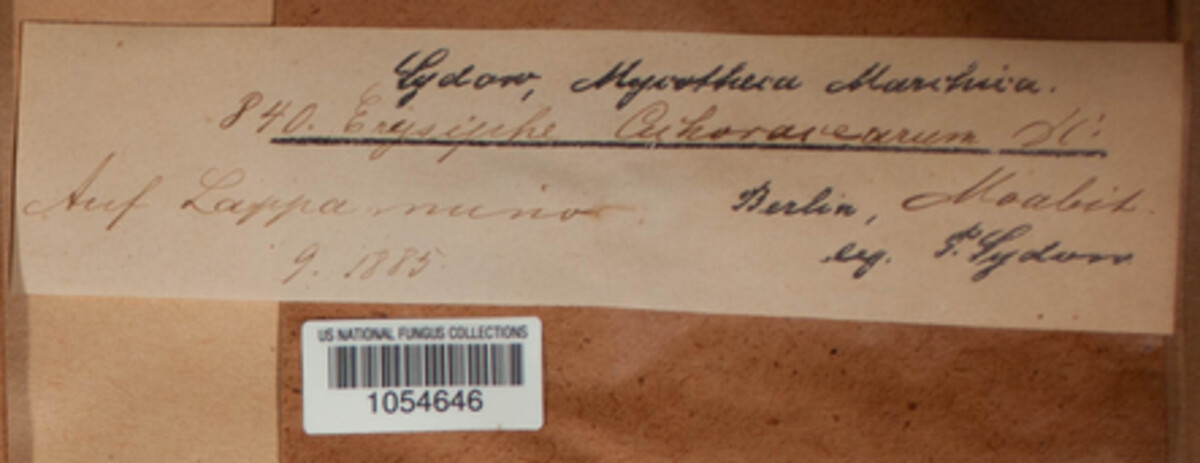 Sydow, Mycotheca Marchica.
840. Erysiphe Cichoracearum DC.
Auf Lappa minor Berlin, Moabit.
9. 1885. leg. P. Sydow
US NATIONAL FUNGUS COLLECTIONS
1054646